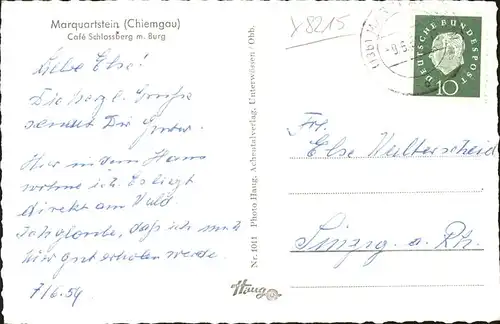 Marquartstein (Chiemgau)
Café Schlossberg m. Burg
Y 8215
DEUTSCHE BUNDESPOST
10
Liebe Else!
Die herzl. Grüße
sendet Dir
Hier in dem Haus
wohne ich. Es liegt
direkt am Wald
Ich glaube, daß ich mich
hier gut erholen werde.
7/6.59
Nr. 1011 Photo Haug, Achentalverlag, Unterwössen / Obb.
Haug
Frl.
Else
Sinzig a. Rh.